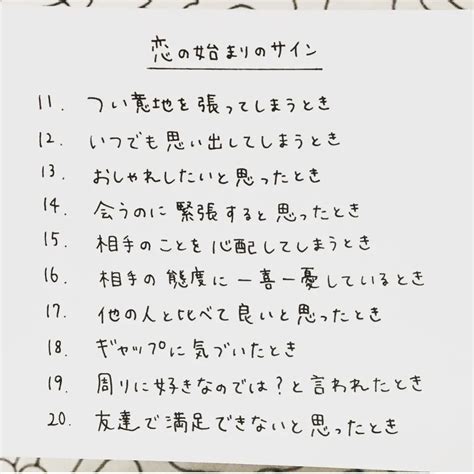 恋の始まりのサイン
11. つい意地を張ってしまうとき
12. いつでも思い出してしまうとき
13. おしゃれしたいと思ったとき
14. 会うのに緊張すると思ったとき
15. 相手のことを心配してしまうとき
16. 相手の態度に一喜一憂しているとき
17. 他の人と比べて良いと思ったとき
18. ギャップに気づいたとき
19. 周りに好きなのでは?と言われたとき
20. 友達で満足できないと思ったとき